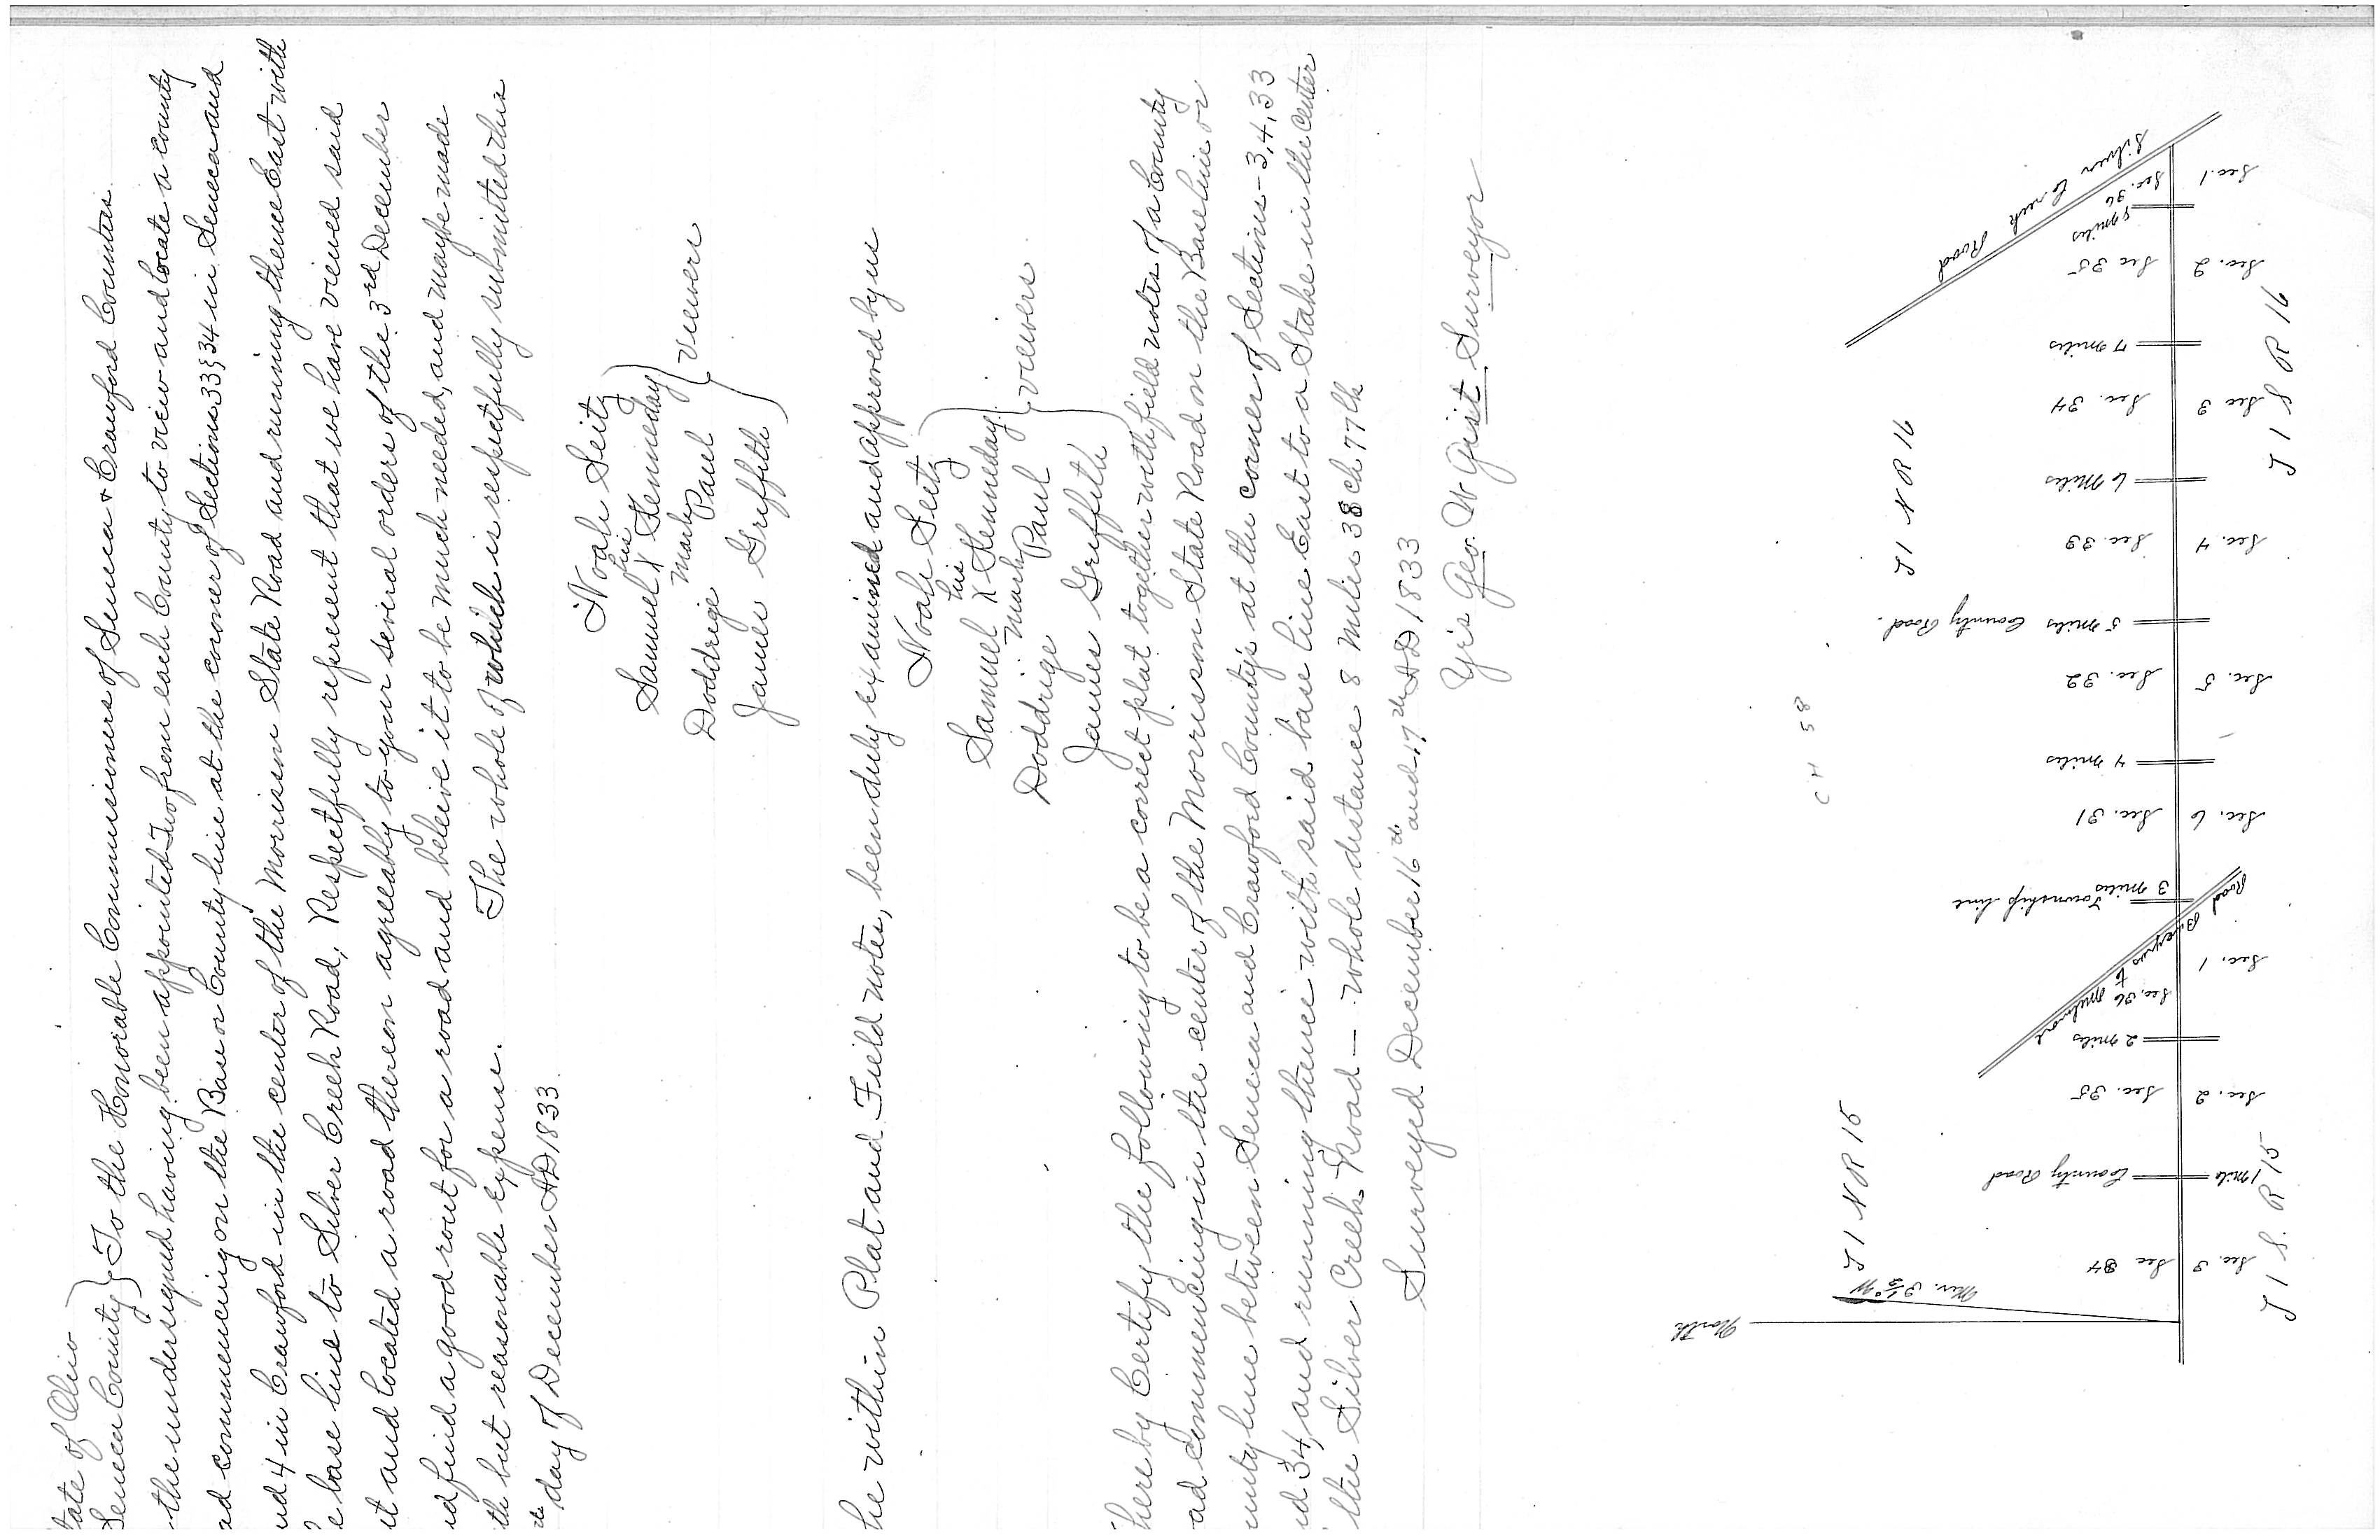 tate of Ohio
Seneca County } To the Honorable Commissioners of Seneca & Crawford Counties
the undersigned having been appointed Two from each County to view and locate a county
ad commencing on the Base or County line at the corner of Sections 33 & 34 in Seneca and
nd 4 in Crawford in the center of the Morrison State Road and running thence East with
e base line to Silver Creek Road, Respectfully represent that we have viewed said
it and located a road thereon agreeably to your several orders of the 3rd December
id find a good rout for a road and beleive it to be much needed, and may be made
th but reasonable expense. The whole of which is respectfully submitted this
th day of December AD 1833
Noah Seitz
his
Samuel X Henneday
mark
Doddrige Paul
James Griffith
} viewers
he within Plat and Field notes, been duly examined and approved by us
Noah Seitz
his
Samuel X Henneday
mark
Doddrige Paul
James Griffith
} viewers
hereby Certify the following to be a correct plat together with field notes of a County
ad commencing in the center of the Morrison State Road on the Base line or
unty line between Seneca and Crawford County's at the corner of Sections - 3, 4, 33
id 34, and running thence with said base line East to a Stake in the center
the Silver Creek Road — whole distance 8 miles 38 ch 77 lk
Surveyed December 16th and 17th AD 1833
Y'rs Geo. W Gist Surveyor
North
Mer. 3½° W
T 1 N R 15
Sec 34
Sec. 3
T 1 S. R 15
County Road
1 mile
Sec. 35
Sec. 2
2 miles
Sec. 36
Sec. 1
Bucyrus to Melmore
Road
3 miles
Township line
Sec. 31
Sec. 6
4 miles
C H 58
Sec. 32
Sec. 5
5 miles County Road.
T 1 N R 16
Sec 33
Sec. 4
6 Miles
Sec. 34
Sec 3
T 1 S R 16
7 miles
Sec 35
Sec. 2
8 miles
Sec. 36
Sec. 1
Silver Creek Road